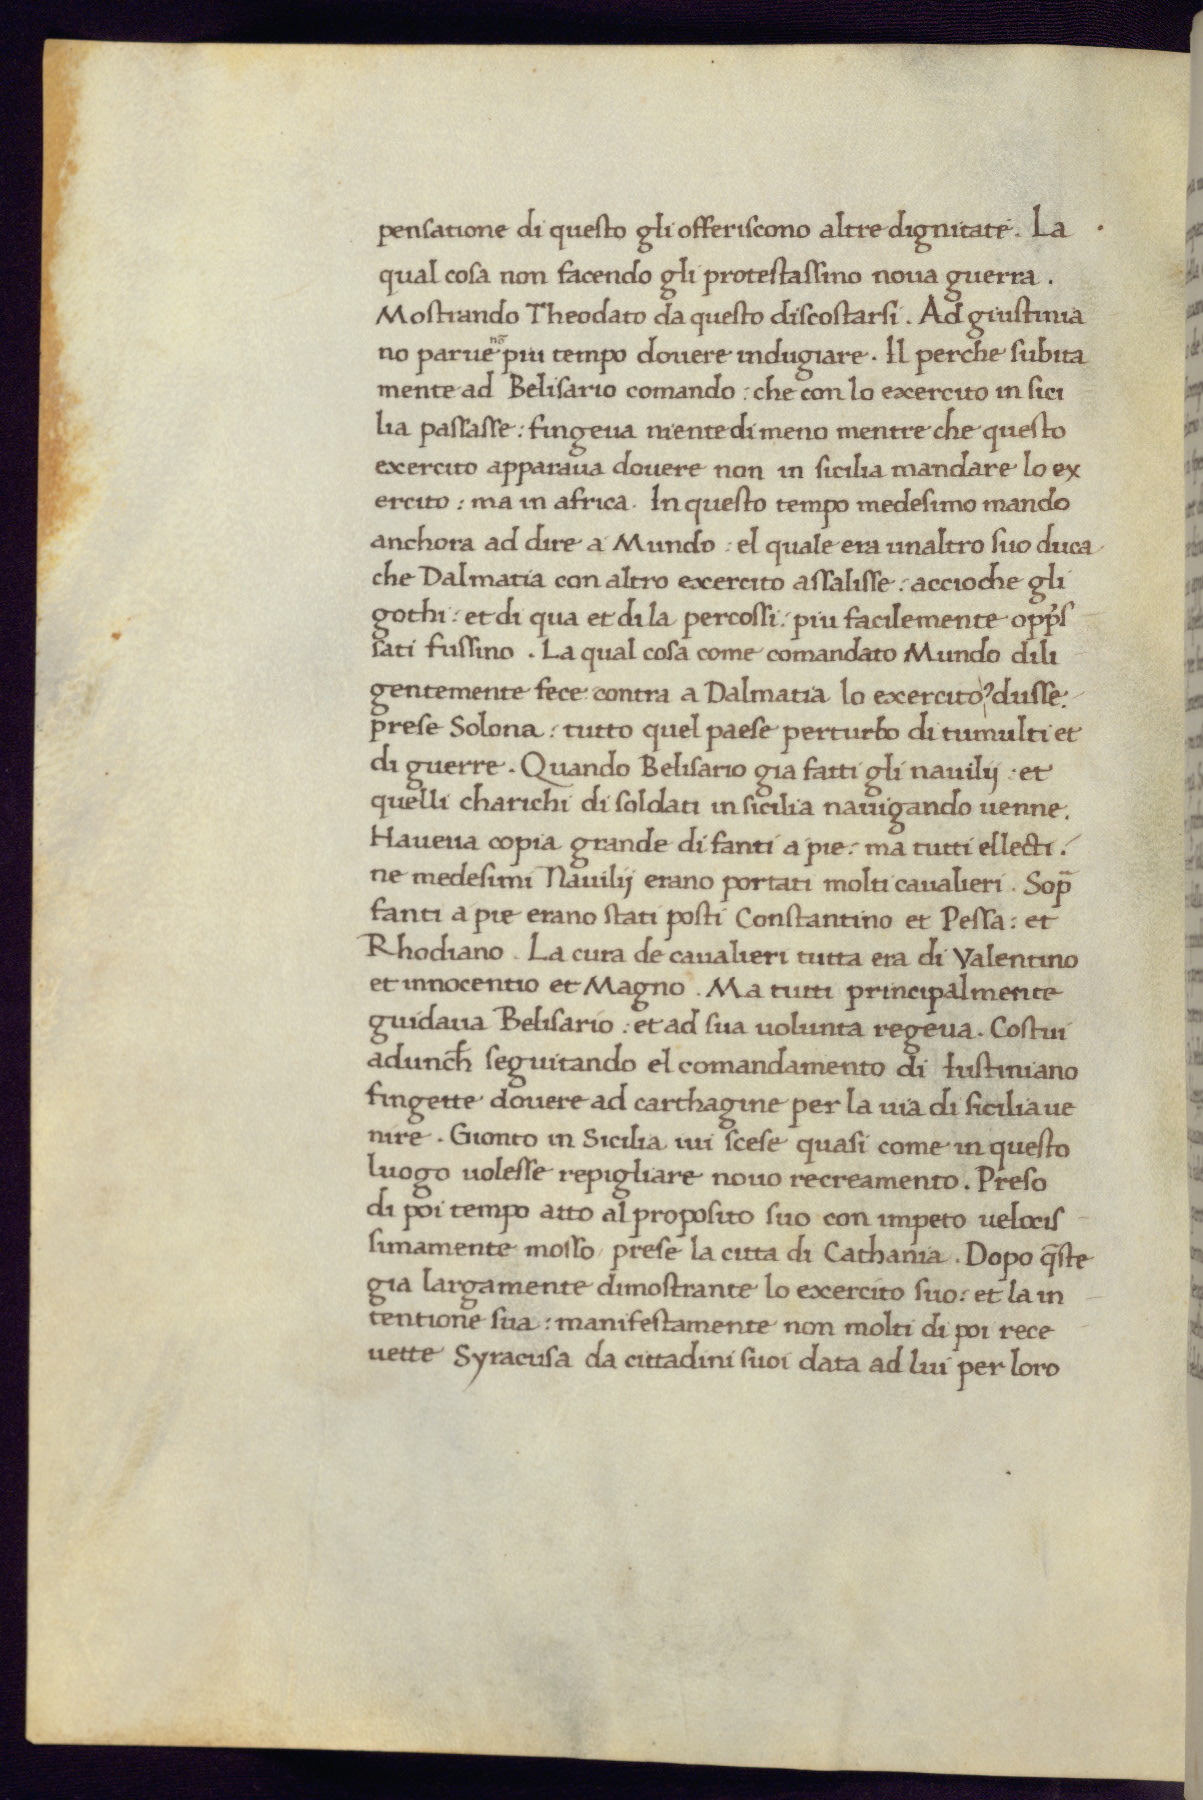 pensatione di questo gli offeriscono altre dignitate. La
qual cosa non facendo gli protestassino noua guerra.
Mostrando Theodato da questo discostarsi. Ad giustinia
no parue nō piu tempo douere indugiare. Il perche subita
mente ad Belisario comando: che con lo excercito in sici
lia passasse: fingeua niente di meno mentre che questo
excercito apparaua douere non in sicilia mandare lo ex
ercito: ma in africa. In questo tempo medesimo mando
anchora ad dire a Mundo: el quale era unaltro suo duca
che Dalmatia con altro excercito assalisse: accioche gli
gothi: et di qua et di la percossi: piu facilemente opp̄s
sati fussino. La qual cosa come comandato Mundo dili
gentemente fece contra a Dalmatia lo excercito ꝯdusse:
prese Solona: tutto quel paese perturbo di tumulti et
di guerre. Quando Belisario gia fatti gli nauilij: et
quelli charichi di soldati in sicilia nauigando uenne.
Haueua copia grande di fanti a pie: ma tutti ellecti:
ne medesimi Nauilij erano portati molti caualieri. Sop̄
fanti a pie erano stati posti Constantino et Pessa: et
Rhodiano. La cura de caualieri tutta era di Valentino
et innocentio et Magno. Ma tutti principalmente
guidaua Belisario: et ad sua uolunta regeua. Costui
adunch̄ seguitando el comandamento di Iustiniano
fingette douere ad carthagine per la uia di sicilia ue
nire. Gionto in Sicilia iui scese quasi come in questo
luogo uolesse repigliare nouo recreamento. Preso
di poi tempo atto al proposito suo con impeto uelocis
simamente mosso prese la citta di Cathania. Dopo q̄ste
gia largamente dimostrante lo excercito suo: et la in
tentione sua: manifestamente non molti di poi rece
uette Syracusa da cittadini suoi data ad lui per loro